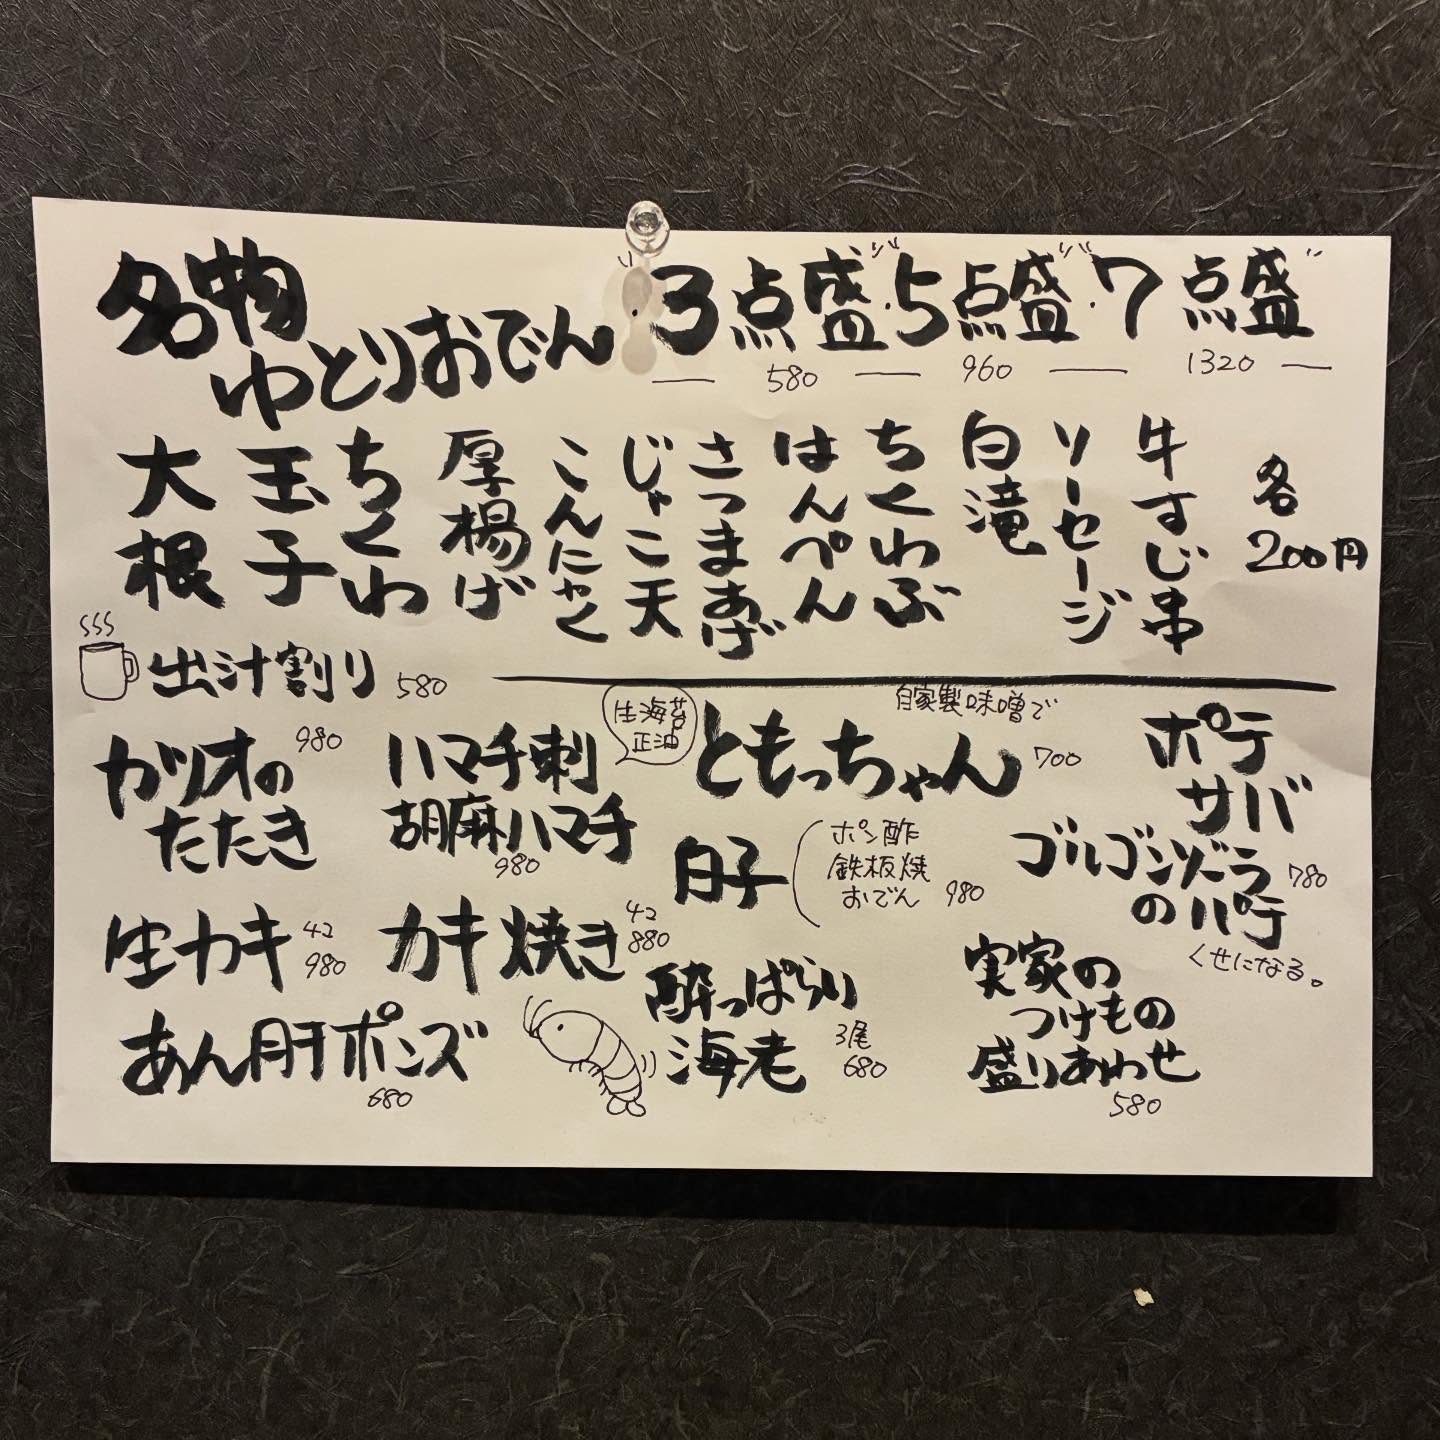 名物
ゆとりおでん・3点盛・5点盛・7点盛
580
960
1320
大根
玉子
ちくわ
厚揚げ
こんにゃく
じゃこ天
さつまあげ
はんぺん
ちくわぶ
白滝
ソーセージ
牛すじ串
各
200円
出汁割り 580
カツオの
たたき
980
ハマチ刺
胡麻ハマチ
980
生海苔
正油
自家製味噌で
ともっちゃん 700
白子
ポン酢
鉄板焼
おでん 980
ポテ
サバ
ゴルゴンゾーラ
のパテ
780
くせになる。
生カキ
42
980
カキ焼き
42
880
あん肝ポンズ
680
酔っぱらい
海老
3尾
680
実家の
つけもの
盛りあわせ
580